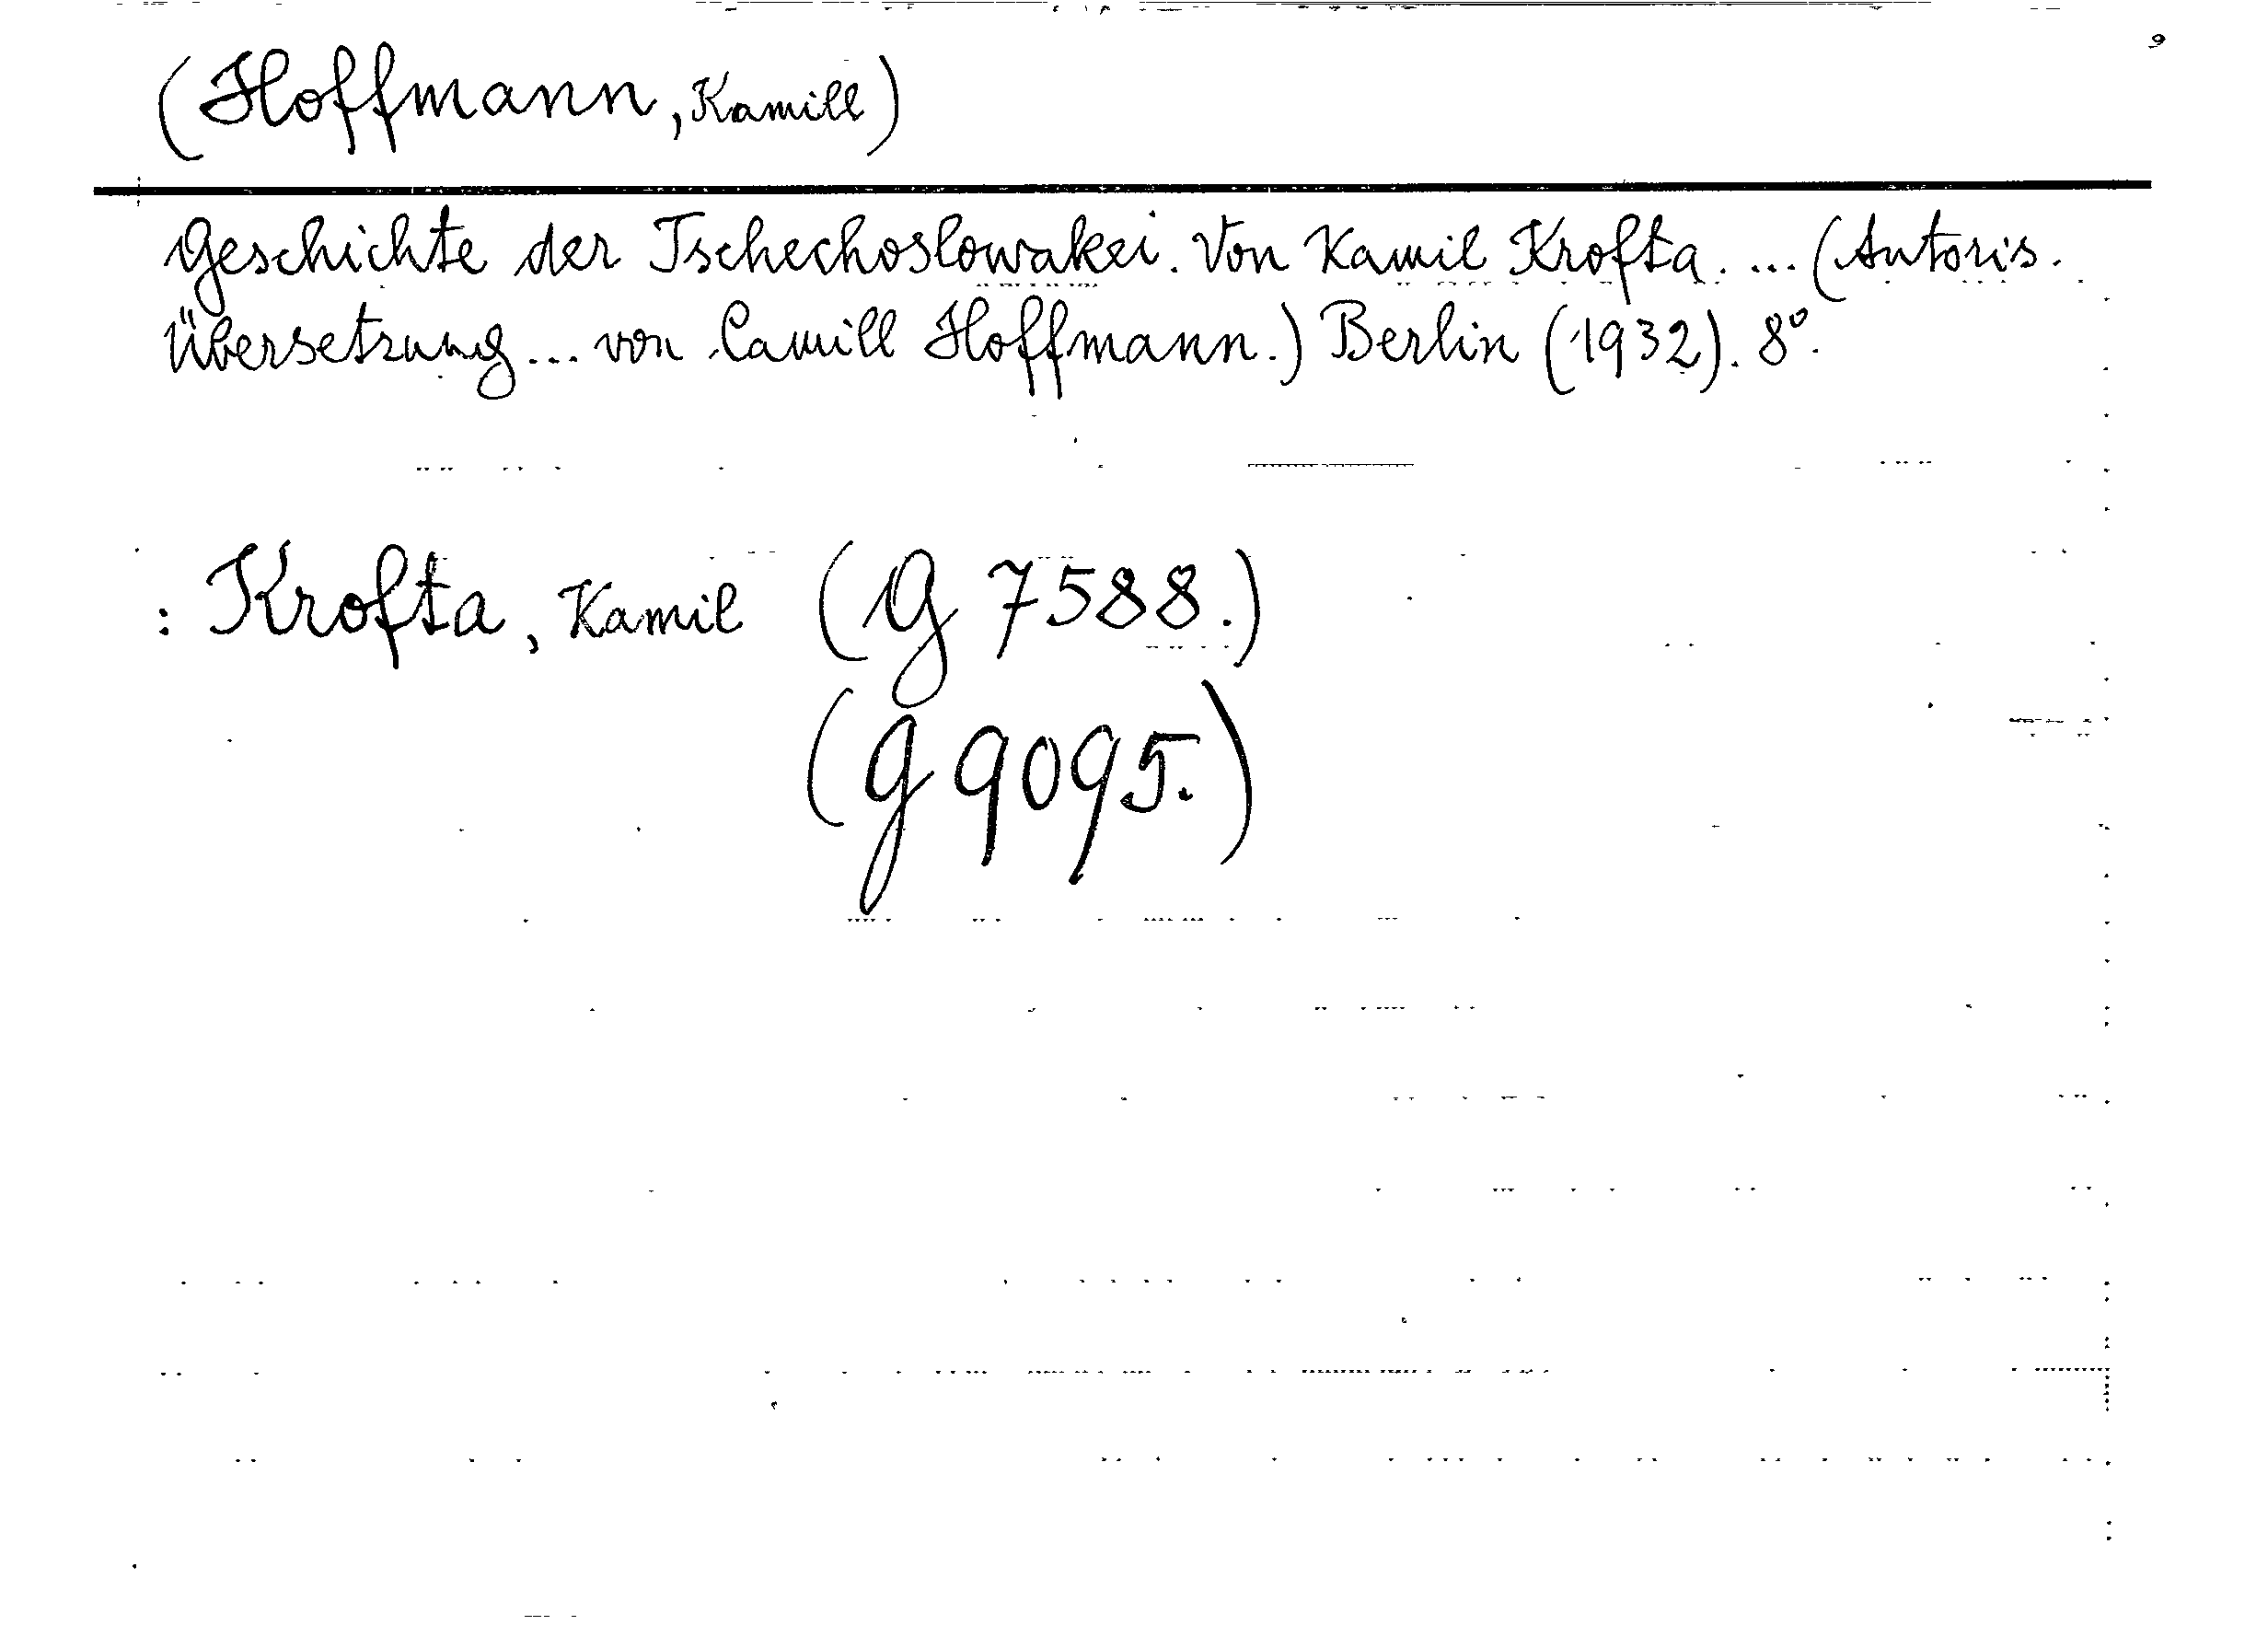 (Hoffmann, Kamill)
Geschichte der Tschechoslowakei. Von Kamil Krofta. ... (Autoris.
Übersetzung ... von Camill Hoffmann.) Berlin (1932). 8°.
: Krofta, Kamil (G 7588.)
(G 9095.)